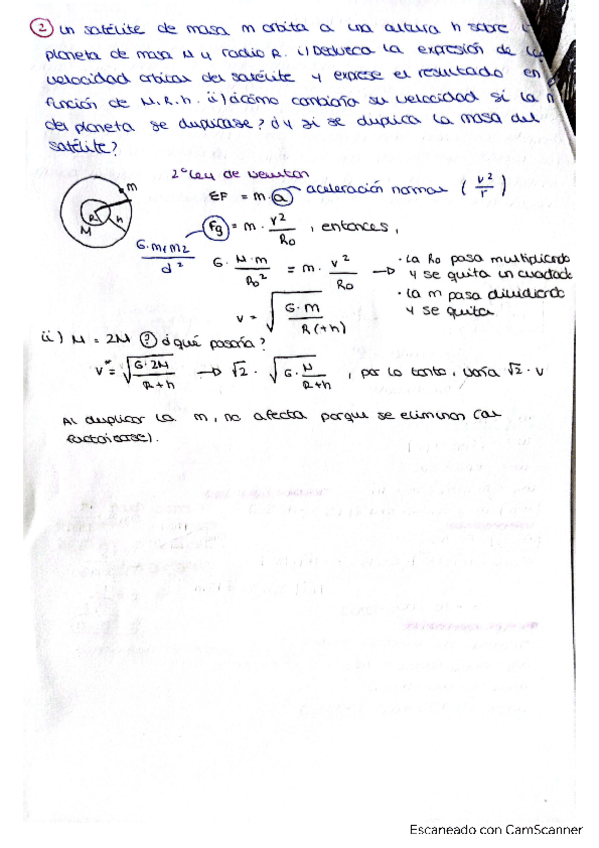 ② Un satélite de masa m orbita a una altura h sobre
planeta de masa M y radio R. i) Deduzca la expresión de la
velocidad orbital del satélite y exprese el resultado en
función de M, R, h. ii) ¿cómo cambiaría su velocidad si la m
del planeta se duplicase? ¿Y si se duplica la masa del
satélite?
2º Ley de Newton
m
R
h
M
ΣF = m · a aceleración normal ( v²/r )
Fg = m · v²/Ro , entonces,
G · m1 m2 / d²
G · M · m / Ro² = m · v²/Ro →
· La Ro pasa multiplicando
y se quita un cuadrado
· La m pasa dividiendo
y se quita
v = √ G · M / R(+h)
ii) M = 2M ? ¿qué pasaría?
v* = √ G · 2M / R+h → √2 · √ G · M / R+h , por lo tanto, varía √2 · v
Al duplicar la m, no afecta porque se eliminan (al
Escaneado con CamScanner